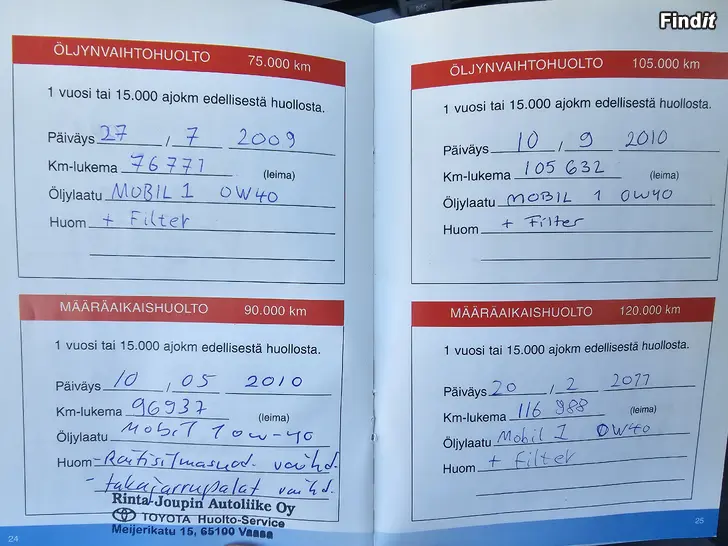 Findit
ÖLJYNVAIHTOHUOLTO 75.000 km
1 vuosi tai 15.000 ajokm edellisestä huollosta.
Päiväys 27 , 7 2009
Km-lukema 76777 (leima)
Öljylaatu MOBIL 1 0W40
Huom + Filter
MÄÄRÄAIKAISHUOLTO 90.000 km
1 vuosi tai 15.000 ajokm edellisestä huollosta.
Päiväys 10 , 05 2010
Km-lukema 96937 (leima)
Öljylaatu Mobil 1 0w-40
Huom - Raitisilmasuod. vaihd.
- takajarrupalat vaihd.
Rinta-Joupin Autoliike Oy
TOYOTA Huolto-Service
Meijerikatu 15, 65100 Vaasa
24
ÖLJYNVAIHTOHUOLTO 105.000 km
1 vuosi tai 15.000 ajokm edellisestä huollosta.
Päiväys 10 , 9 2010
Km-lukema 105 632 (leima)
Öljylaatu MOBIL 1 0W40
Huom + Filter
MÄÄRÄAIKAISHUOLTO 120.000 km
1 vuosi tai 15.000 ajokm edellisestä huollosta.
Päiväys 20 , 2 2011
Km-lukema 116 988 (leima)
Öljylaatu Mobil 1 0W40
Huom + Filter
25